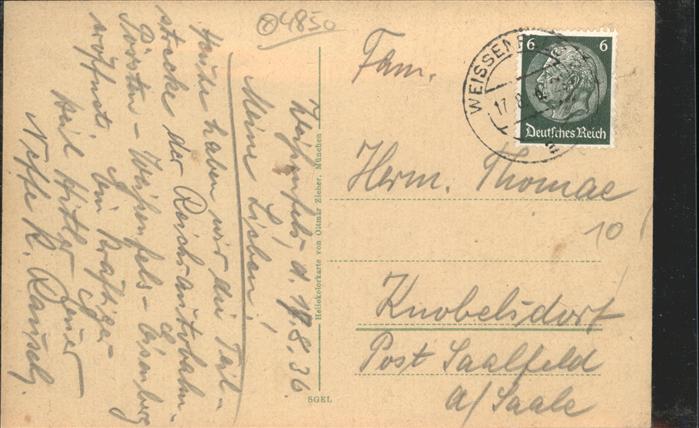 4850
Weißenfels, d. 17.8.36.
Meine Lieben!
Heute haben wir die Teil-
strecke der Reichsautobahn
Pörsten - Weißenfels - Eisenberg
eröffnet. Ein kräftiges
Heil Hitler Euer
Neffe K.
Hellekolorkarte von Ottmar Zieher, München
SGEL
Fam.
Herm. Thomae
Knobelsdorf
Post Saalfeld
a/Saale
10
WEISSENF
17.8.
6 6
Deutsches Reich